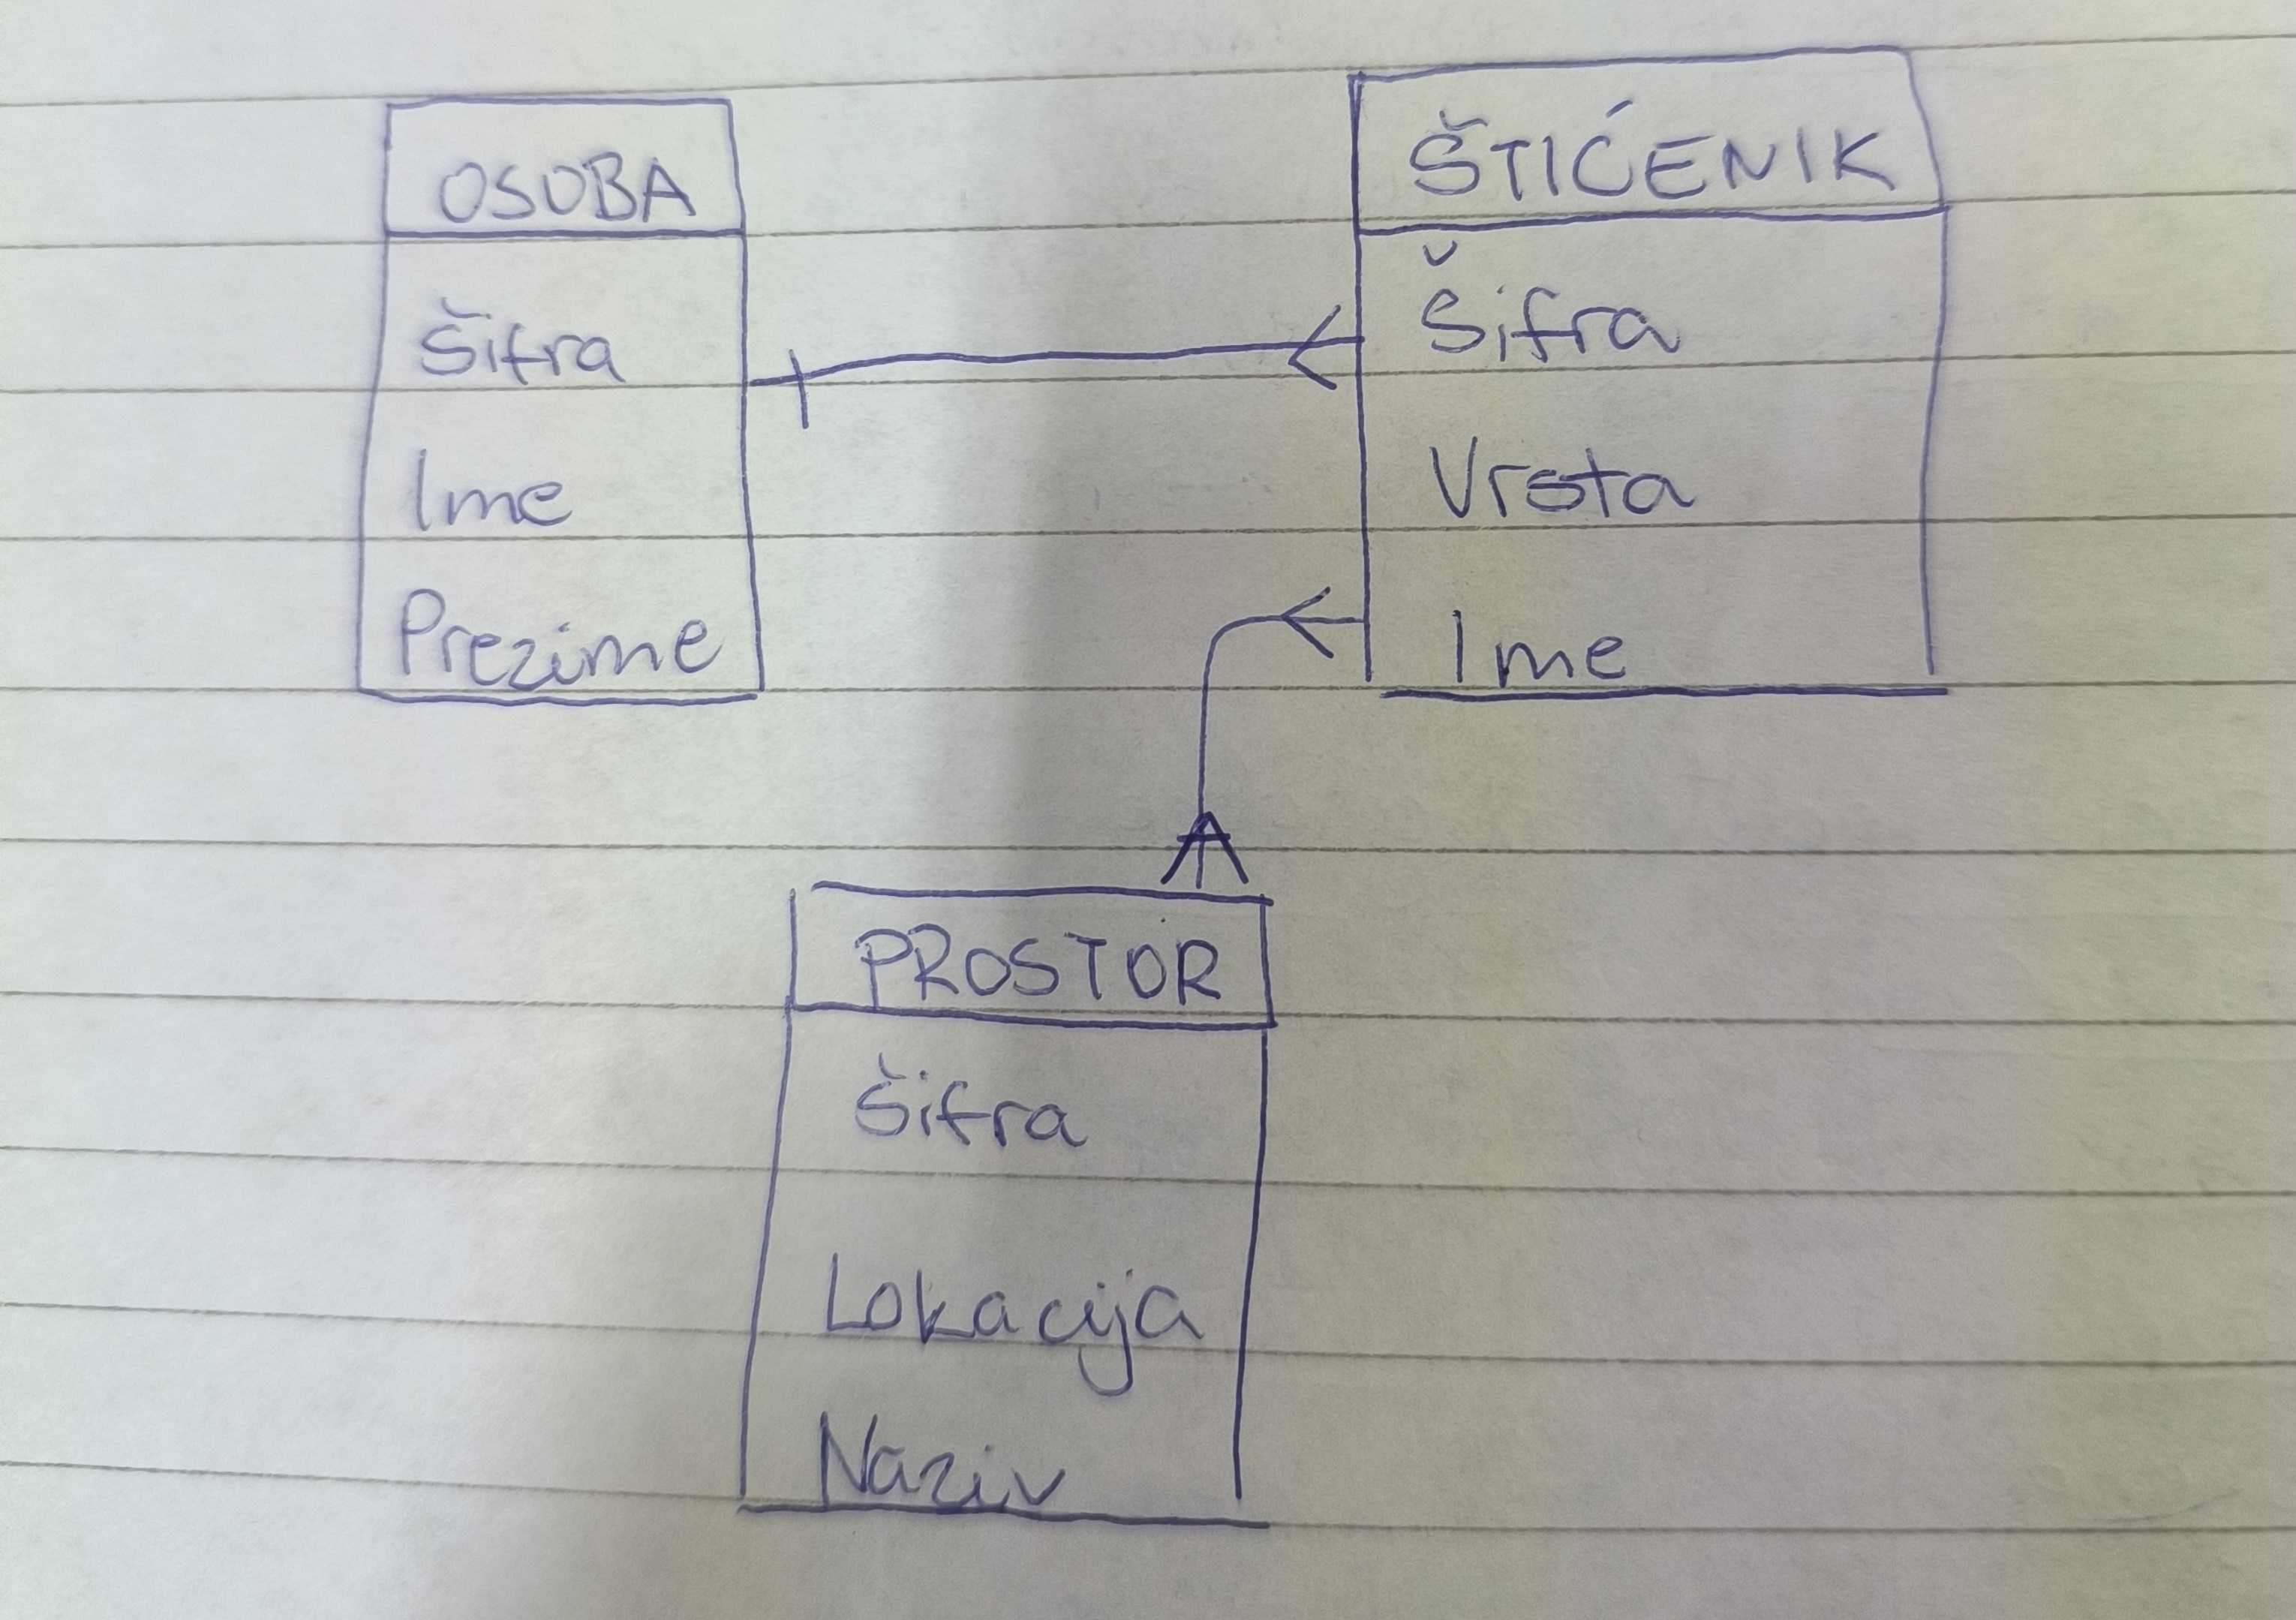 OSOBA
Šifra
Ime
Prezime
ŠTIĆENIK
Šifra
Vrsta
Ime
PROSTOR
Šifra
Lokacija
Naziv